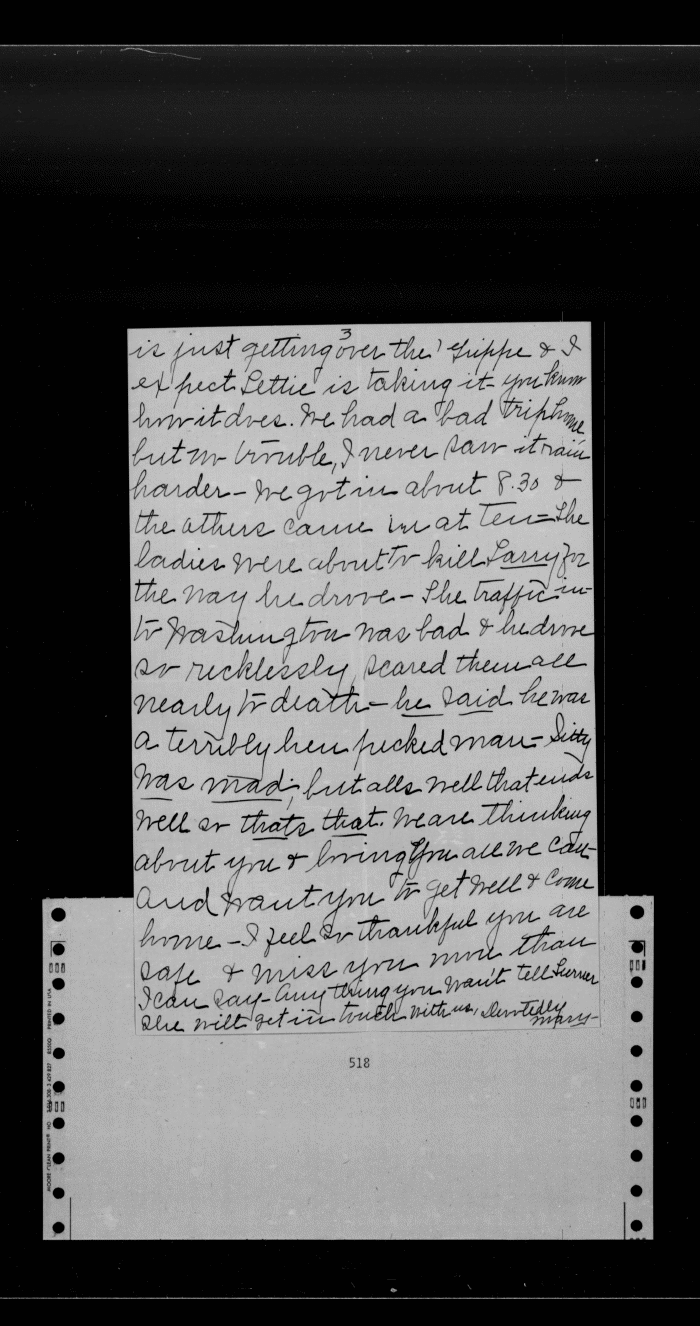 3
is just getting over the' Grippe & I
expect Lettie is taking it - you know
how it does. We had a bad trip home
but no trouble, I never saw it rain
harder - We got in about 8.30 &
the others came in at Ten = The
ladies were about to kill Larry for
the way he drove - The traffic in-
to Washington was bad & he drove
so recklessly, scared them all
nearly to death - he said he was
a terribly hen pecked man -
was mad; but alls well that ends
well so thats that. We are thinking
about you & loving you all we can -
and want you to get well & come
home - I feel so thankful you are
safe & miss you more than
I can say - Any thing you want tell
she will get in touch with us, Devotedly
Mary -
518
MOORE CLEAN PRINT® NO PRINTED IN USA